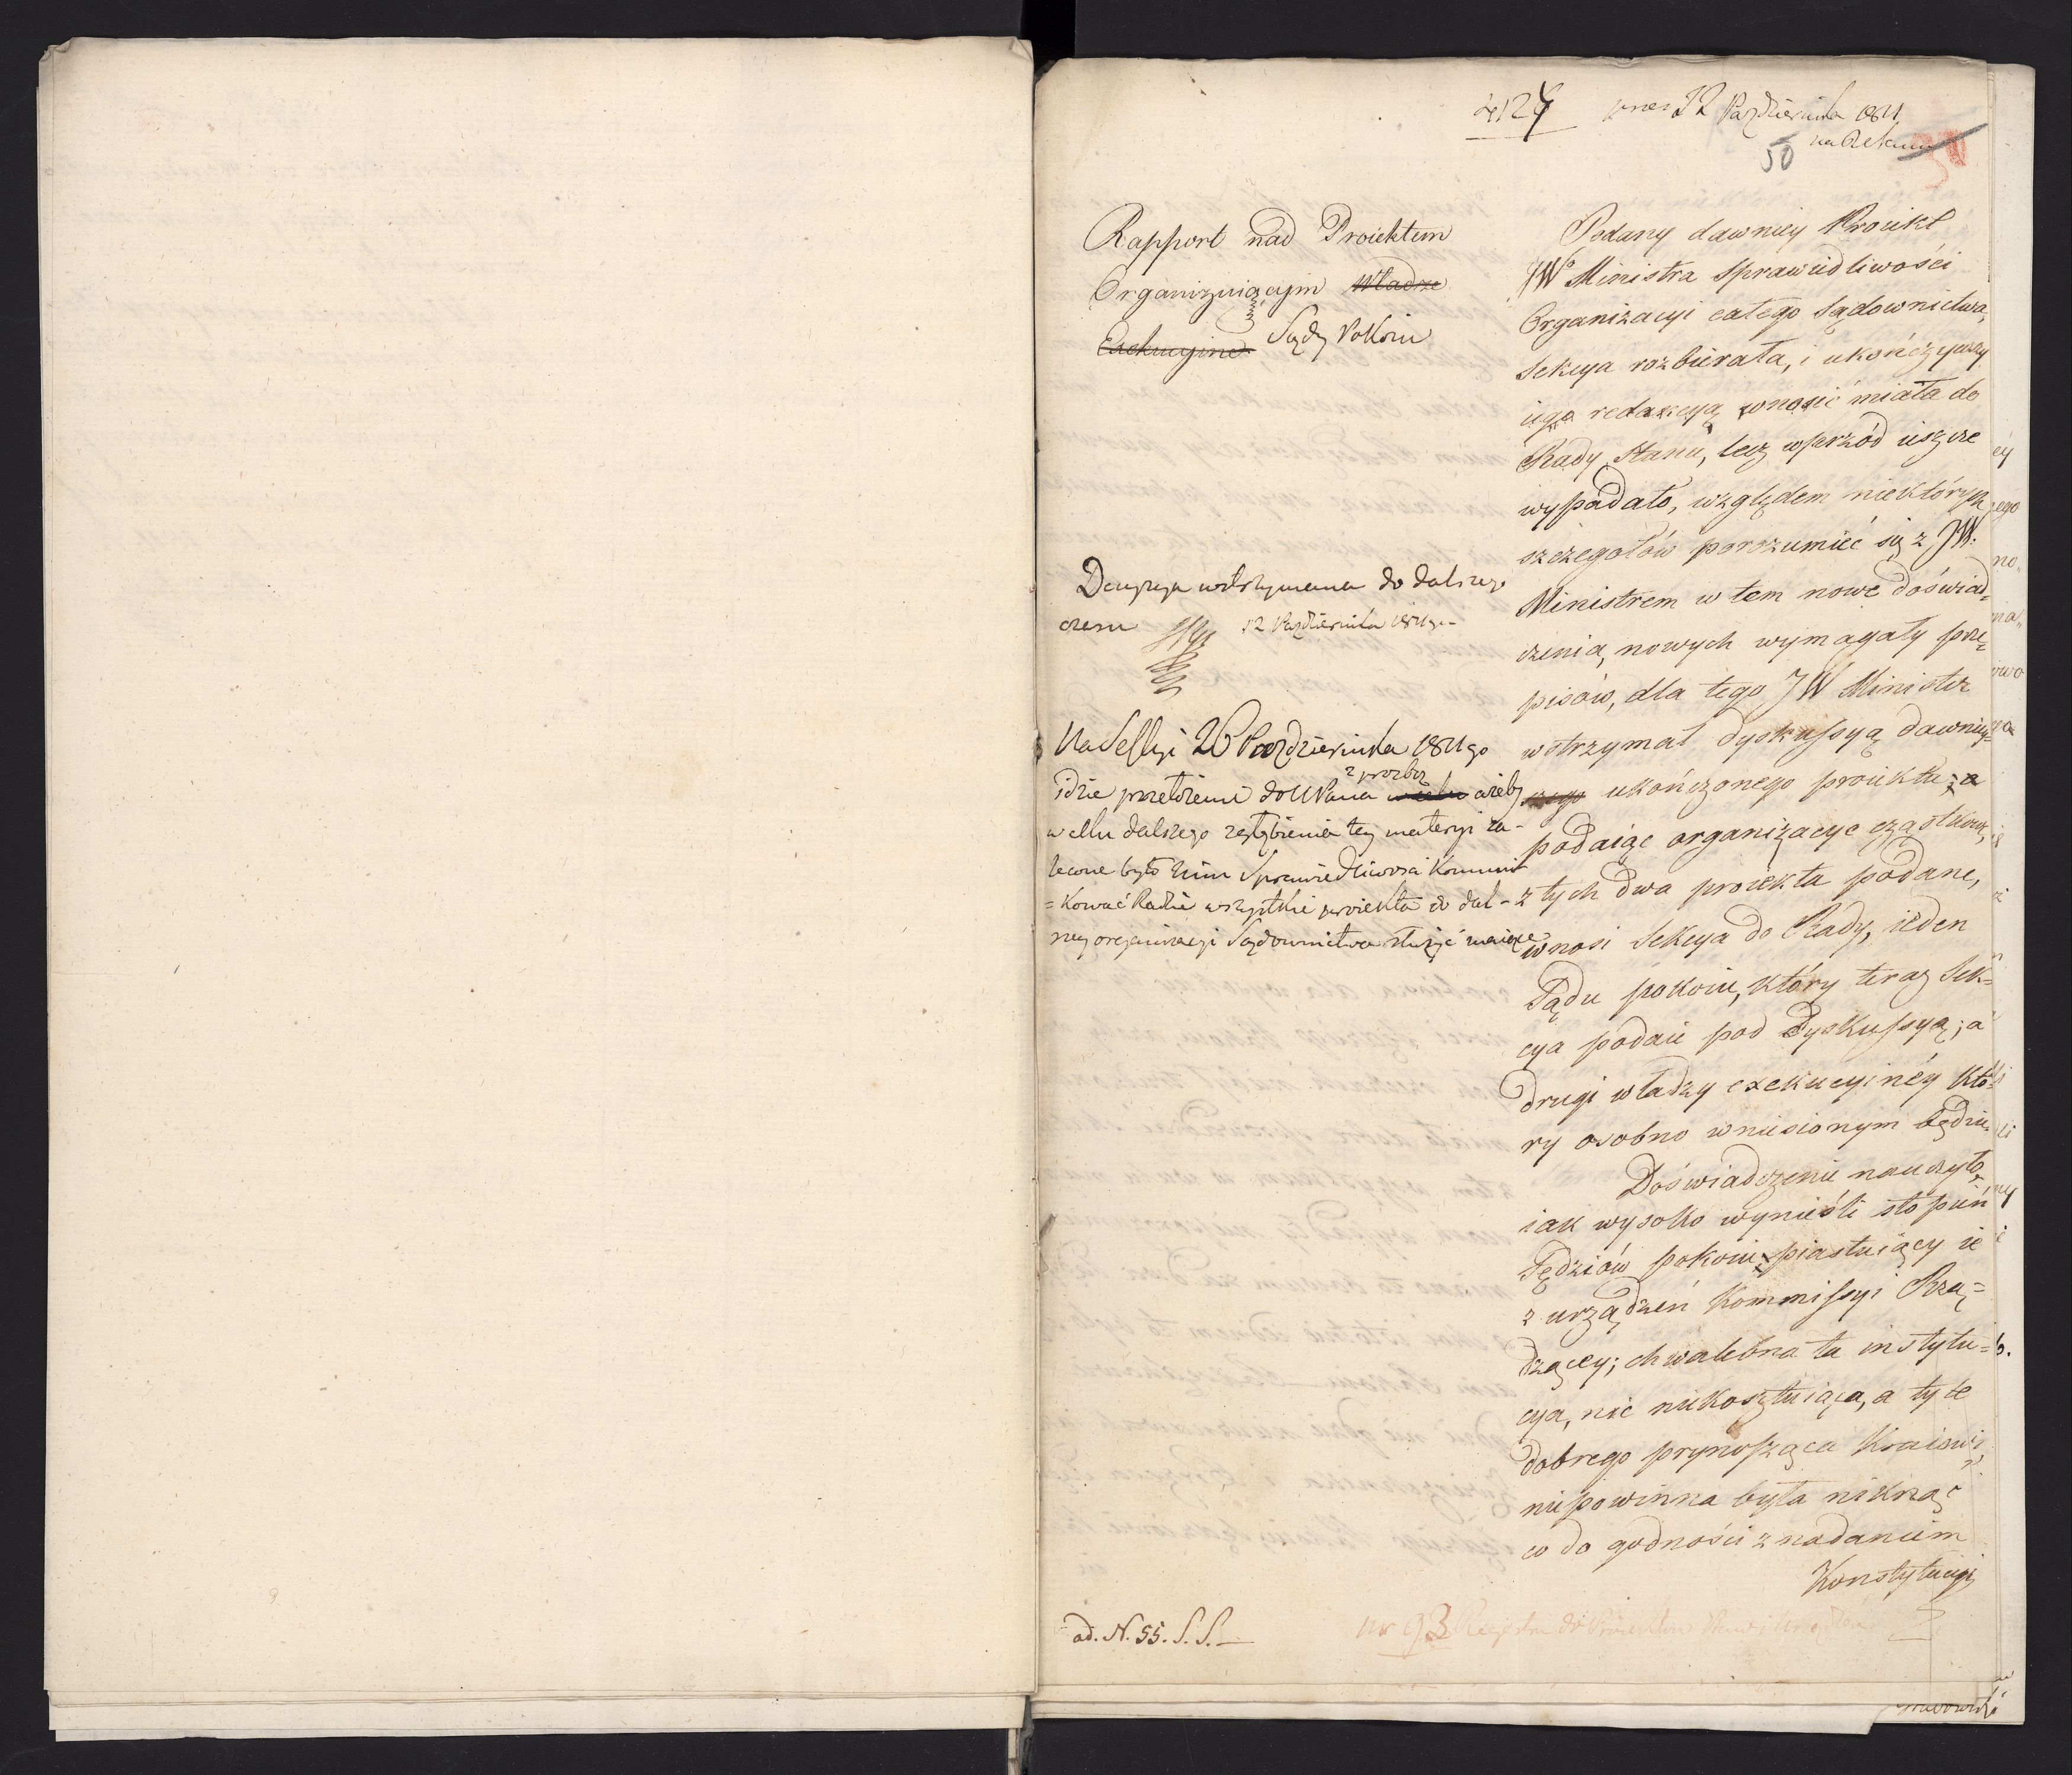 12 Października 1811
50
Rapport nad Proiektem
Organizuiącym Władze
Exekucyine Sądy Pokoiu
Decyzya wstrzymana do dalszego
czasu 12 Października 1811go
Na Sessyi 26 Października 1811go
idzie przełożenie do z prozbą ażeby
w celu dalszego zgłębienia tey materyi za-
lecone było Sprawiedliwości Kommuni
=kować Radzie wszystkie proiekta do dal-
szey organizacyi Sądownictwa służyć maiące
ad. N. 55. S. S.
Podany dawniey Proiekt
JWo Ministra Sprawiedliwości
Organizacyi całego Sądownictwa,
Sekcya rozbierała, i ukończywszy
iego redakcyą wnosić miała do
Rady Stanu, lecz wprzód ieszcze
wypadało, względem niektórych
szczegółów porozumieć się z JW.
Ministrem w tem nowe doświad=
czenia, nowych wymagały prze=
pisów, dla tego JW Minister
wstrzymał dyskussyą dawniey=
szego ukończonego proiektu; a
podaiąc organizacye cząstkowe,
z tych dwa proiekta podane,
wnosi Sekcya do Rady, ieden
Sądu pokoiu, który teraz Sek=
cya podaie pod Dyskussyą; a
drugi władzy exekucyinéy któ=
ry osobno wniesionym będzie.
Doświadczenie nauczyło,
iak wysoko wynieśli stopień
Sędziów pokoiu piastuiący ie
z urządzeń Kommissyi Rzą=
dzącey; chwalebna ta instytu=
cya, nic niekosztuiąca, a tyle
dobrego prynosząca Kraiowi,
niepowinna była niknąć
co do godności z nadaniem
Konstytucyi
nr 93